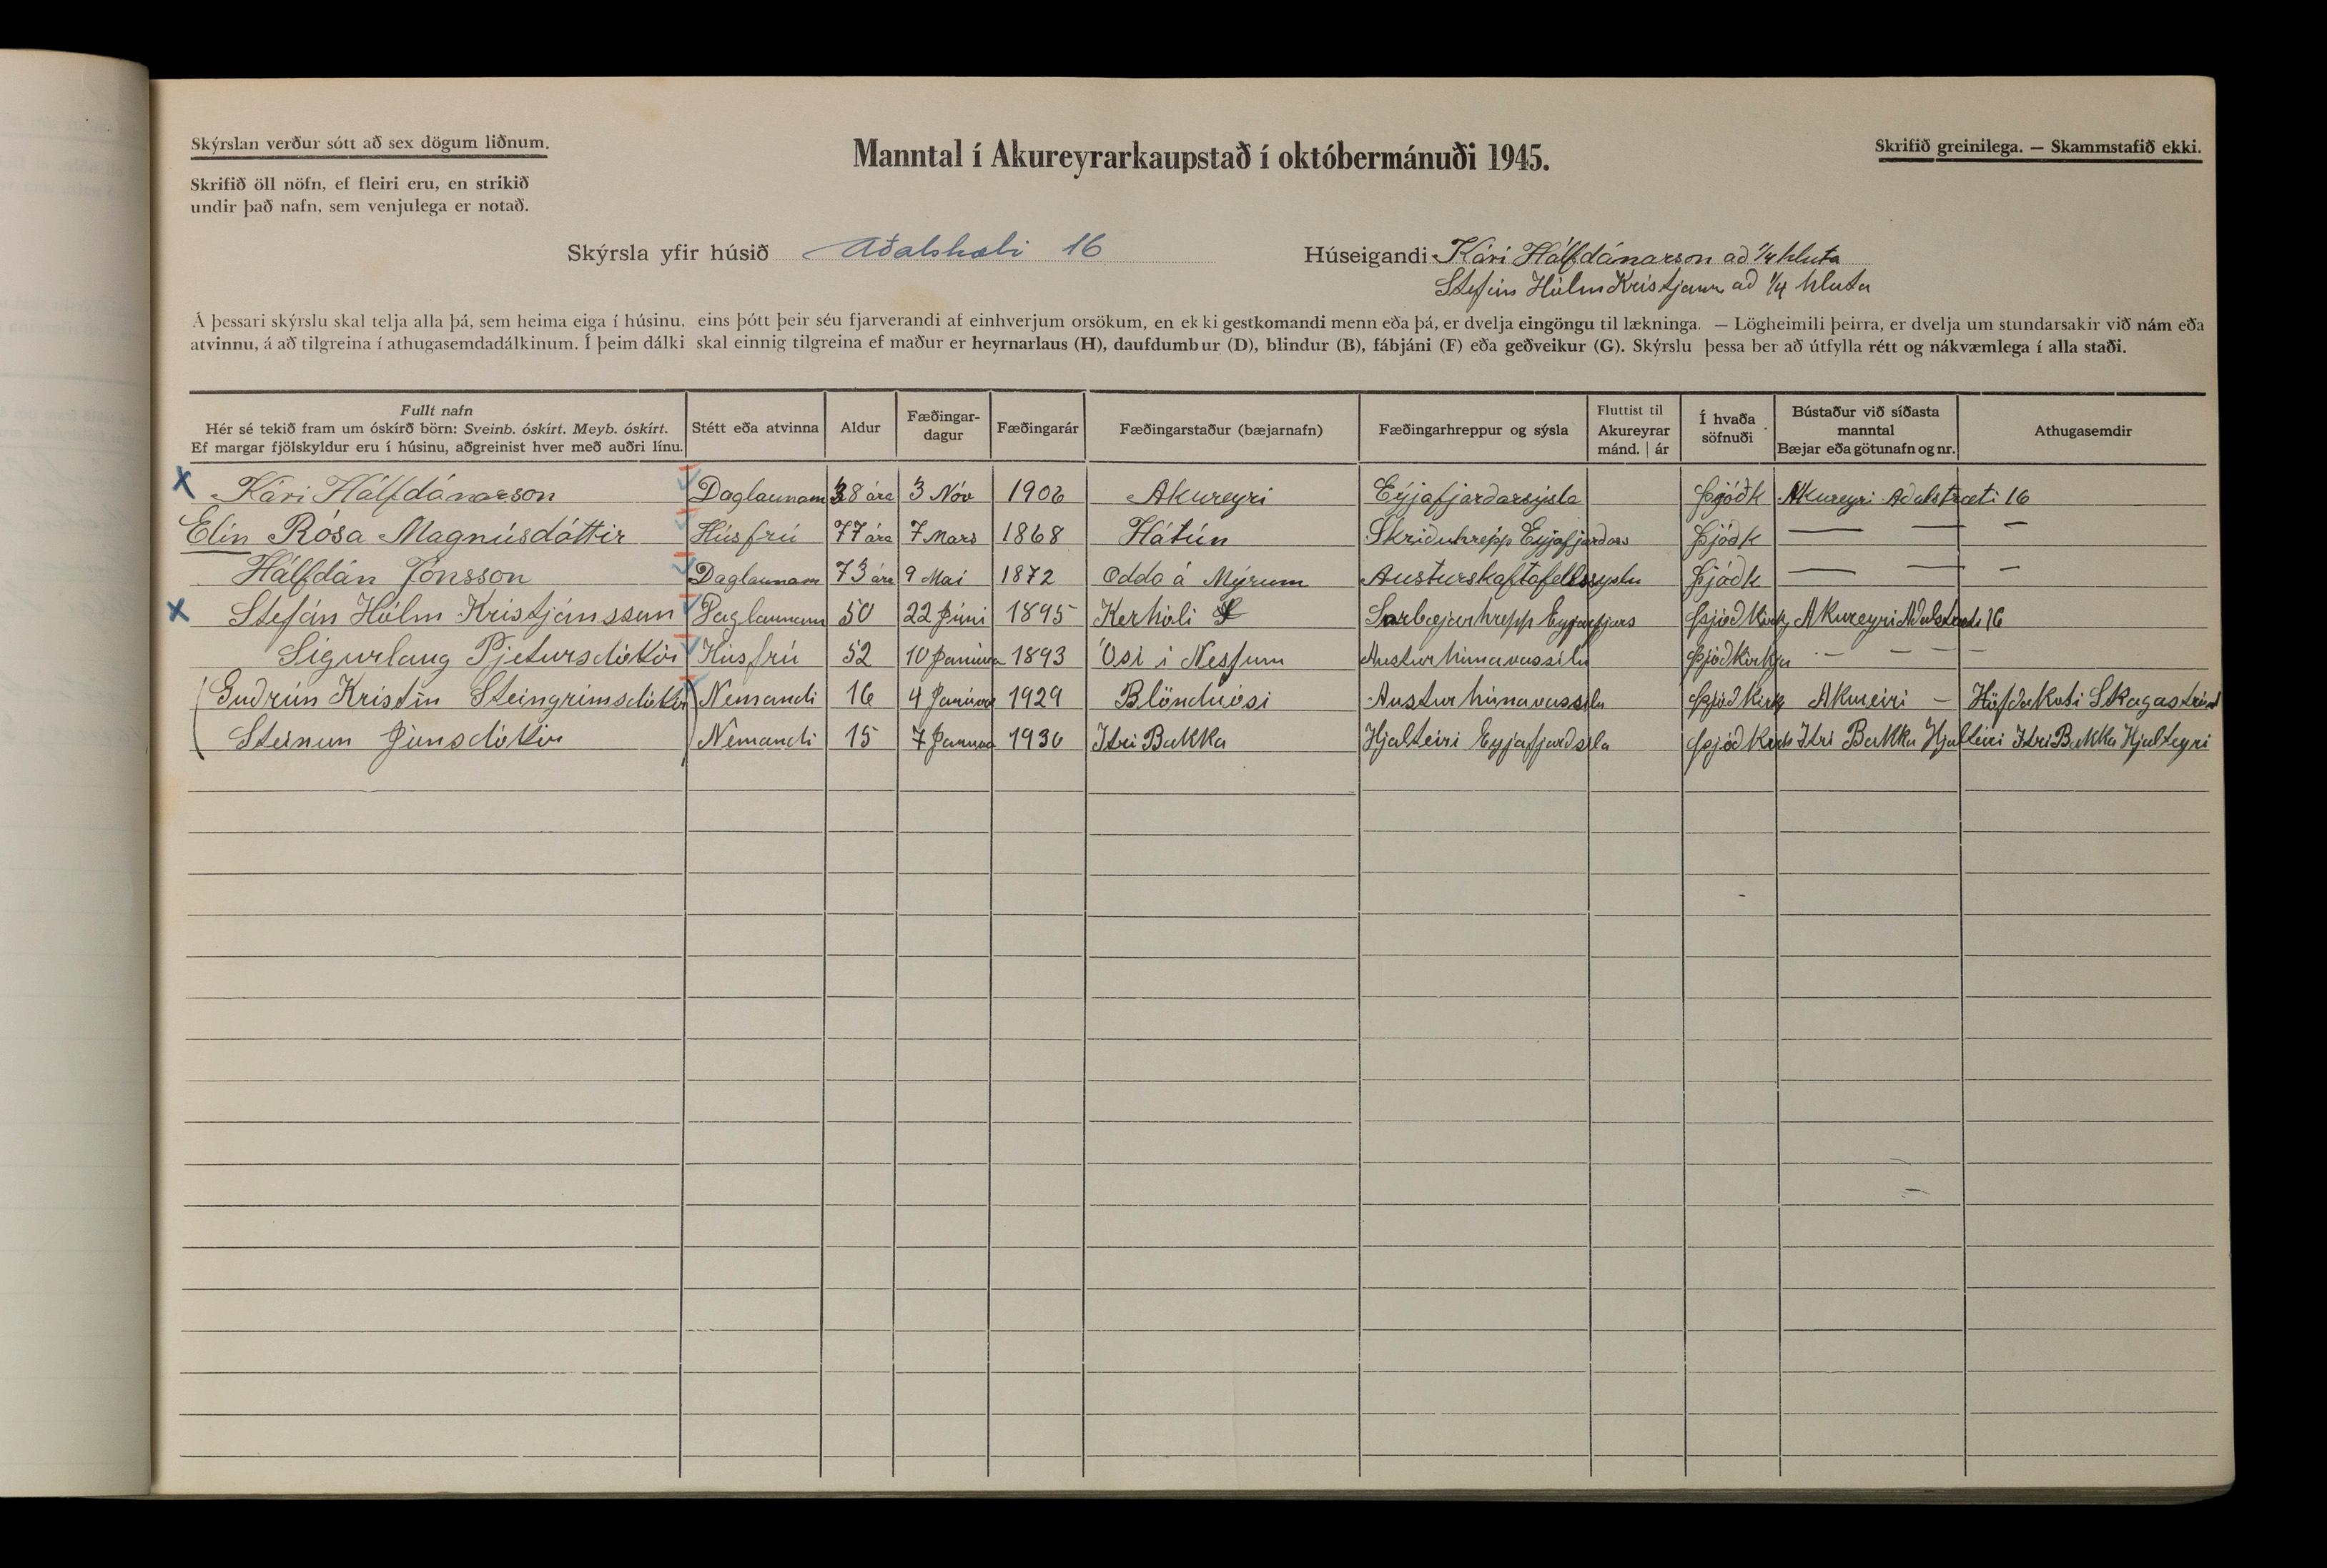 Skýrslan verður sótt að sex dögum liðnum.
Manntal í Akureyrarkaupstað í októbermánuði 1945.
Skrifið greinilega. — Skammstafið ekki.
Skrifið öll nöfn, ef fleiri eru, en strikið
undir það nafn, sem venjulega er notað.
Skýrsla yfir húsið Aðalstræti 16
Húseigandi Kári Hálfdánarson að 1/4 hluta
Stefán Hólm Kristjanss að 1/4 hluta
Á þessari skýrslu skal telja alla þá, sem heima eiga í húsinu, eins þótt þeir séu fjarverandi af einhverjum orsökum, en ekki gestkomandi menn eða þá, er dvelja eingöngu til lækninga. — Lögheimili þeirra, er dvelja um stundarsakir við nám eða
atvinnu, á að tilgreina í athugasemdadálkinum. Í þeim dálki skal einnig tilgreina ef maður er heyrnarlaus (H), daufdumbur (D), blindur (B), fábjáni (F) eða geðveikur (G). Skýrslu þessa ber að útfylla rétt og nákvæmlega í alla staði.
Fullt nafn
Hér sé tekið fram um óskírð börn: Sveinb. óskírt. Meyb. óskírt.
Ef margar fjölskyldur eru í húsinu, aðgreinist hver með auðri línu.
Stétt eða atvinna
Aldur
Fæðingar-
dagur
Fæðingarár
Fæðingarstaður (bæjarnafn)
Fæðingarhreppur og sýsla
Fluttist til
Akureyrar
mánd. | ár
Í hvaða
söfnuði
Bústaður við síðasta
manntal
Bæjar eða götunafn og nr.
Athugasemdir
X Kári Hálfdánarson Daglaunam 38 ára 3 Nóv 1906 Akureyri Eyjafjarðarsýsla Þjóðk Akureyri Aðalstræti 16
Elín Rósa Magnúsdóttir Húsfrú 77 ára 7 Mars 1868 Hátún Skriðuhrepp Eyjafjarðars Þjóðk — — —
Hálfdán Jónsson Daglaunam 73 ára 9 Maí 1872 Oddo á Mýrum Austurskaftafellssyslu Þjóðk — — —
X Stefán Hólm Kristjánsson Daglaunam 50 22 Júni 1895 Kerhóli Saurbæjarhrepp Eyjafjars Þjóðkirkj Akureyri Aðalstræti 16
Sigurlaug Pjetursdóttir Húsfrú 52 10 Janúar 1893 Ósi i Nesjum Austur húnavassilu Þjóðkirkja — — — —
(Guðrún Kristín Steingrímsdóttir) Nemandi 16 4 Janúar 1929 Blönduósi Austur húnavassilu Þjóðkirkj Akureiri — Höfðakoti Skagaströnd
(Steinun Jónsdóttir) Nemandi 15 7 Januar 1930 Itri Bakka Hjalteiri Eyjafjardsila Þjóðkirk Itri Bakka Hjalteiri Itri Bakka Hjalteyri